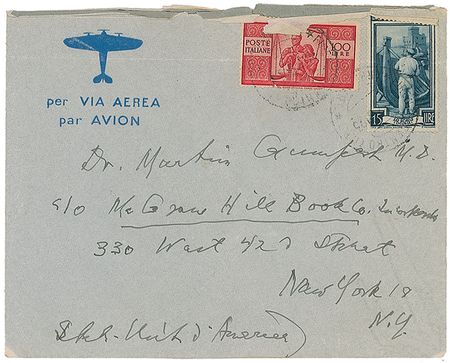 per VIA AEREA
par AVION
POSTE
ITALIANE
100
LIRE
15
LIRE
Dr. Martin Gumpert M.D.
c/o McGraw Hill Book Co. Incorporated
330 West 42d Street
New York 18
N.Y.